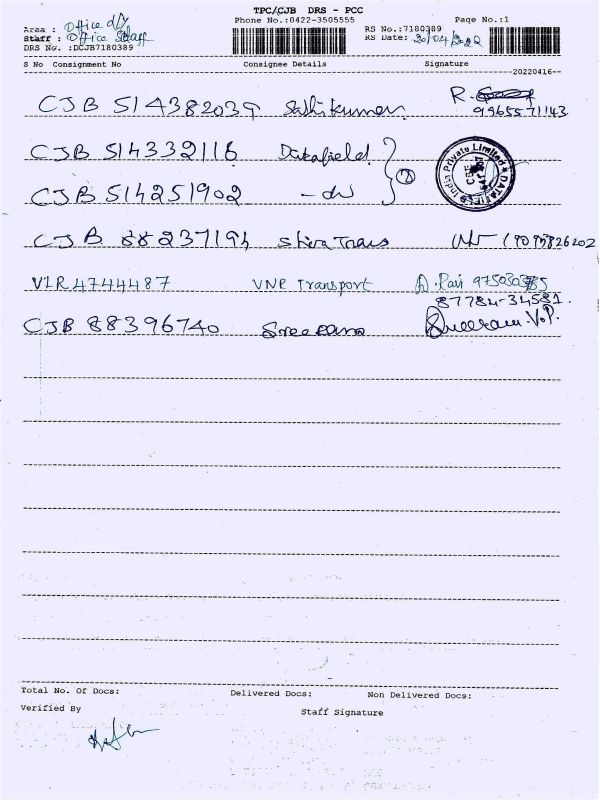 TPC/CJB DRS - PCC
Phone No.:0422-3505555
Page No.:1
Area : Office d/y
Staff : Office Staff
DRS No. :DCJB7180389
RS No.:7180389
RS Date: 20/04/2022
S No Consignment No Consignee Details Signature
--20220416--
CJB 514382039 Sasikumar R.
9965571143
CJB 514332118 Datafield
CJB 514251902 - do 2
DATAFIELD India Private Limited
CBE
CJB 88237194 Shiva Trans
VIR4744487 VNR Transport D. Ravi
87784-34581.
CJB 88396740 Sreeram Sreeram.V.P.
Total No. Of Docs: Delivered Docs: Non Delivered Docs:
Verified By
Staff Signature